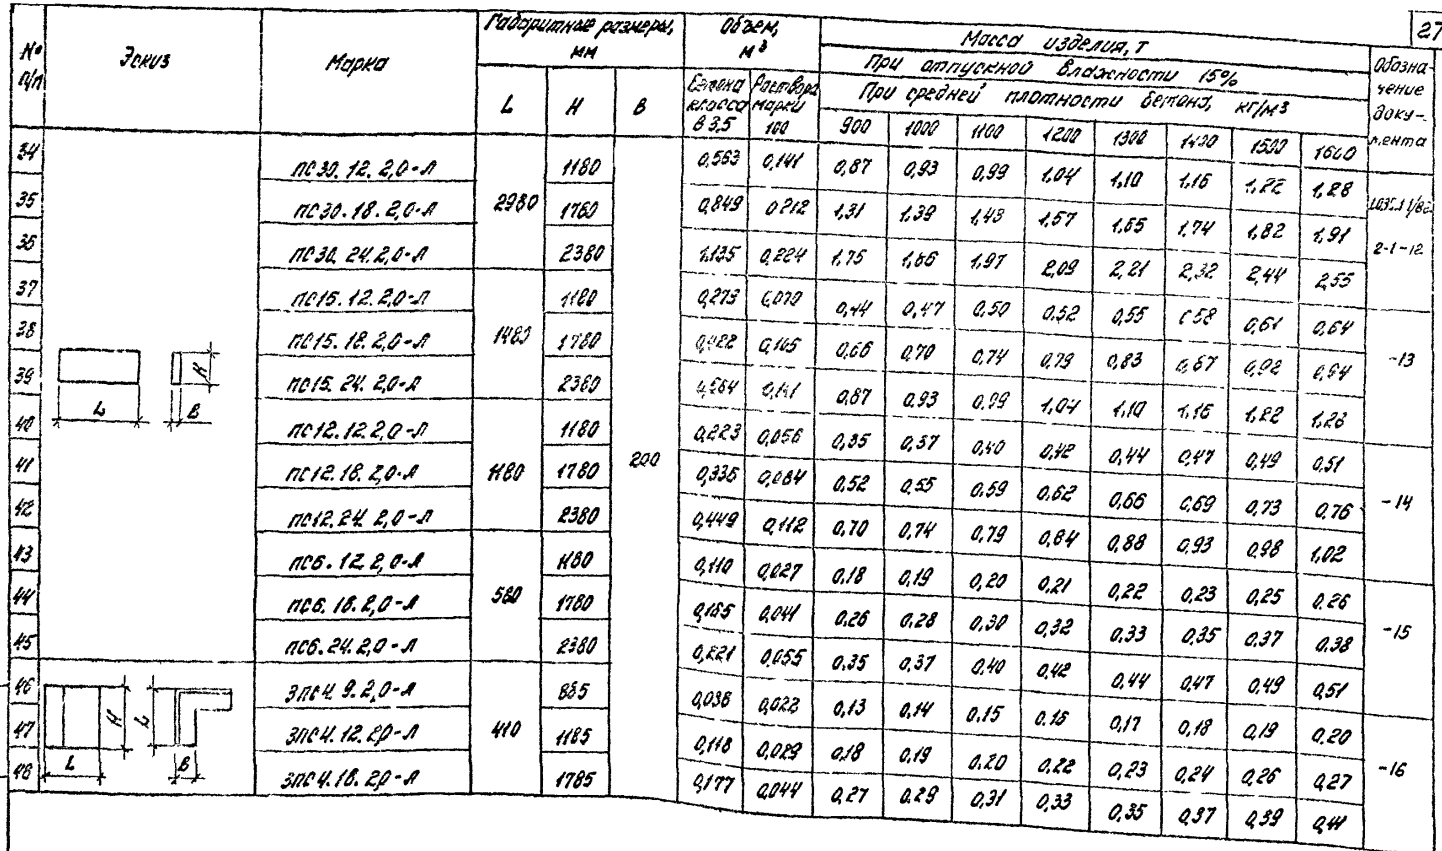 27
№ п/п Эскиз Марка Габаритные размеры, мм Объем, м³ Масса изделия, т Обозначение документа
При отпускной влажности 15%
L H B Бетона класса В 3,5 Раствора марки 100 При средней плотности бетона, кг/м³
900 1000 1100 1200 1300 1400 1500 1600
34 ПС30.12.2,0-Л 2980 1180 200 0,563 0,141 0,87 0,93 0,99 1,04 1,10 1,16 1,22 1,28
35 ПС30.18.2,0-Л 1780 0,849 0,212 1,31 1,39 1,48 1,57 1,65 1,74 1,82 1,91
36 ПС30.24.2,0-Л 2380 1,135 0,224 1,75 1,86 1,97 2,09 2,21 2,32 2,44 2,55 2-1-12
37 ПС15.12.2,0-Л 1480 1180 0,273 0,070 0,44 0,47 0,50 0,52 0,55 0,58 0,61 0,64
38 ПС15.18.2,0-Л 1780 0,422 0,105 0,66 0,70 0,74 0,79 0,83 0,87 0,92 -13
39 ПС15.24.2,0-Л 2380 0,564 0,141 0,87 0,93 0,99 1,04 1,10 1,16 1,22 1,28
40 ПС12.12.2,0-Л 1180 1180 0,223 0,056 0,35 0,37 0,40 0,42 0,44 0,47 0,49 0,51
41 ПС12.18.2,0-Л 1780 0,336 0,084 0,52 0,55 0,59 0,62 0,66 0,69 0,73 0,76 -14
42 ПС12.24.2,0-Л 2380 0,449 0,112 0,70 0,74 0,79 0,84 0,88 0,93 0,98 1,02
43 ПС6.12.2,0-Л 580 1180 0,110 0,027 0,18 0,19 0,20 0,21 0,22 0,23 0,25 0,26
44 ПС6.18.2,0-Л 1780 0,165 0,041 0,26 0,28 0,30 0,32 0,33 0,35 0,37 0,38 -15
45 ПС6.24.2,0-Л 2380 0,221 0,055 0,35 0,37 0,40 0,42 0,44 0,47 0,49 0,51
46 3ПС4.9.2,0-Л 410 885 0,022 0,13 0,14 0,15 0,16 0,17 0,18 0,19 0,20
47 3ПС4.12.2,0-Л 1185 0,118 0,029 0,18 0,19 0,20 0,22 0,23 0,24 0,26 0,27 -16
48 3ПС4.18.2,0-Л 1785 0,177 0,044 0,27 0,29 0,31 0,33 0,35 0,37 0,39 0,41
L B H
L B H L